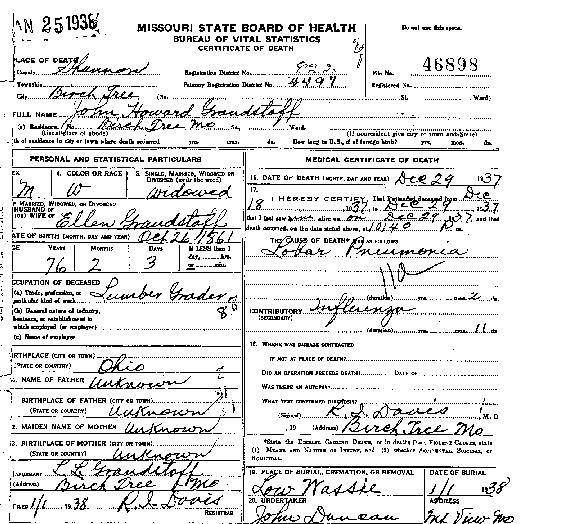 JAN 25 1938
MISSOURI STATE BOARD OF HEALTH
BUREAU OF VITAL STATISTICS
CERTIFICATE OF DEATH
Do not use this space.
PLACE OF DEATH
County Shannon
Registration District No.
File No. 46898
Township
Primary Registration District No. 4497
Registered No.
City Birch Tree (No. St. Ward)
FULL NAME John Howard Grandstaff
(a) Residence, No. Birch Tree Mo St. Ward.
(Usual place of abode) (If nonresident give city or town and State)
th of residence in city or town where death occurred yrs. mos. How long in U.S., if of foreign birth? yrs. mos.
PERSONAL AND STATISTICAL PARTICULARS
MEDICAL CERTIFICATE OF DEATH
4. COLOR OR RACE
5. SINGLE, MARRIED, WIDOWED OR DIVORCED (write the word)
M W Widowed
16. DATE OF DEATH (MONTH, DAY AND YEAR) Dec 29 1937
17. I HEREBY CERTIFY, That I attended deceased from Dec
18 1937, to Dec 29 1937
that I last saw alive on Dec 29 1937, and that
death occurred, on the date stated above, at 10:40 P m.
IF MARRIED, WIDOWED, OR DIVORCED
HUSBAND OF
(OR) WIFE OF Ellen Grandstaff
DATE OF BIRTH (MONTH, DAY AND YEAR) Oct 26 1861
YEARS MONTHS DAYS If LESS than 1 day, hrs. or min.
76 2 3
THE CAUSE OF DEATH WAS AS FOLLOWS:
Lobar Pneumonia
(duration) yrs. mos. 2
CONTRIBUTORY Influenza
(SECONDARY)
(duration) yrs. 11 ds.
OCCUPATION OF DECEASED
(a) Trade, profession, or particular kind of work Lumber Grader
(b) General nature of industry, business, or establishment in which employed (or employer)
(c) Name of employer
18. WHERE WAS DISEASE CONTRACTED
IF NOT AT PLACE OF DEATH?
DID AN OPERATION PRECEDE DEATH? DATE OF
WAS THERE AN AUTOPSY?
WHAT TEST CONFIRMED DIAGNOSIS?
BIRTHPLACE (CITY OR TOWN)
(STATE OR COUNTRY) Ohio
NAME OF FATHER Unknown
BIRTHPLACE OF FATHER (CITY OR TOWN)
(STATE OR COUNTRY) Unknown
2. MAIDEN NAME OF MOTHER Unknown
3. BIRTHPLACE OF MOTHER (CITY OR TOWN)
(STATE OR COUNTRY) Unknown
(Signed) R. I. Davis M. D.
, 19 (Address) Birch Tree Mo
*State the DISEASE CAUSING DEATH, or in deaths from VIOLENT CAUSES, state
(1) MEANS AND NATURE OF INJURY, and (2) whether ACCIDENTAL, SUICIDAL, or
HOMICIDAL.
INFORMANT L L Grandstaff
(Address) Birch Tree Mo
FILED 1/1 1938 R. I. Davis
REGISTRAR
19. PLACE OF BURIAL, CREMATION, OR REMOVAL
DATE OF BURIAL
Low Wassie 1/1 1938
20. UNDERTAKER ADDRESS
John Duncan Mt View Mo